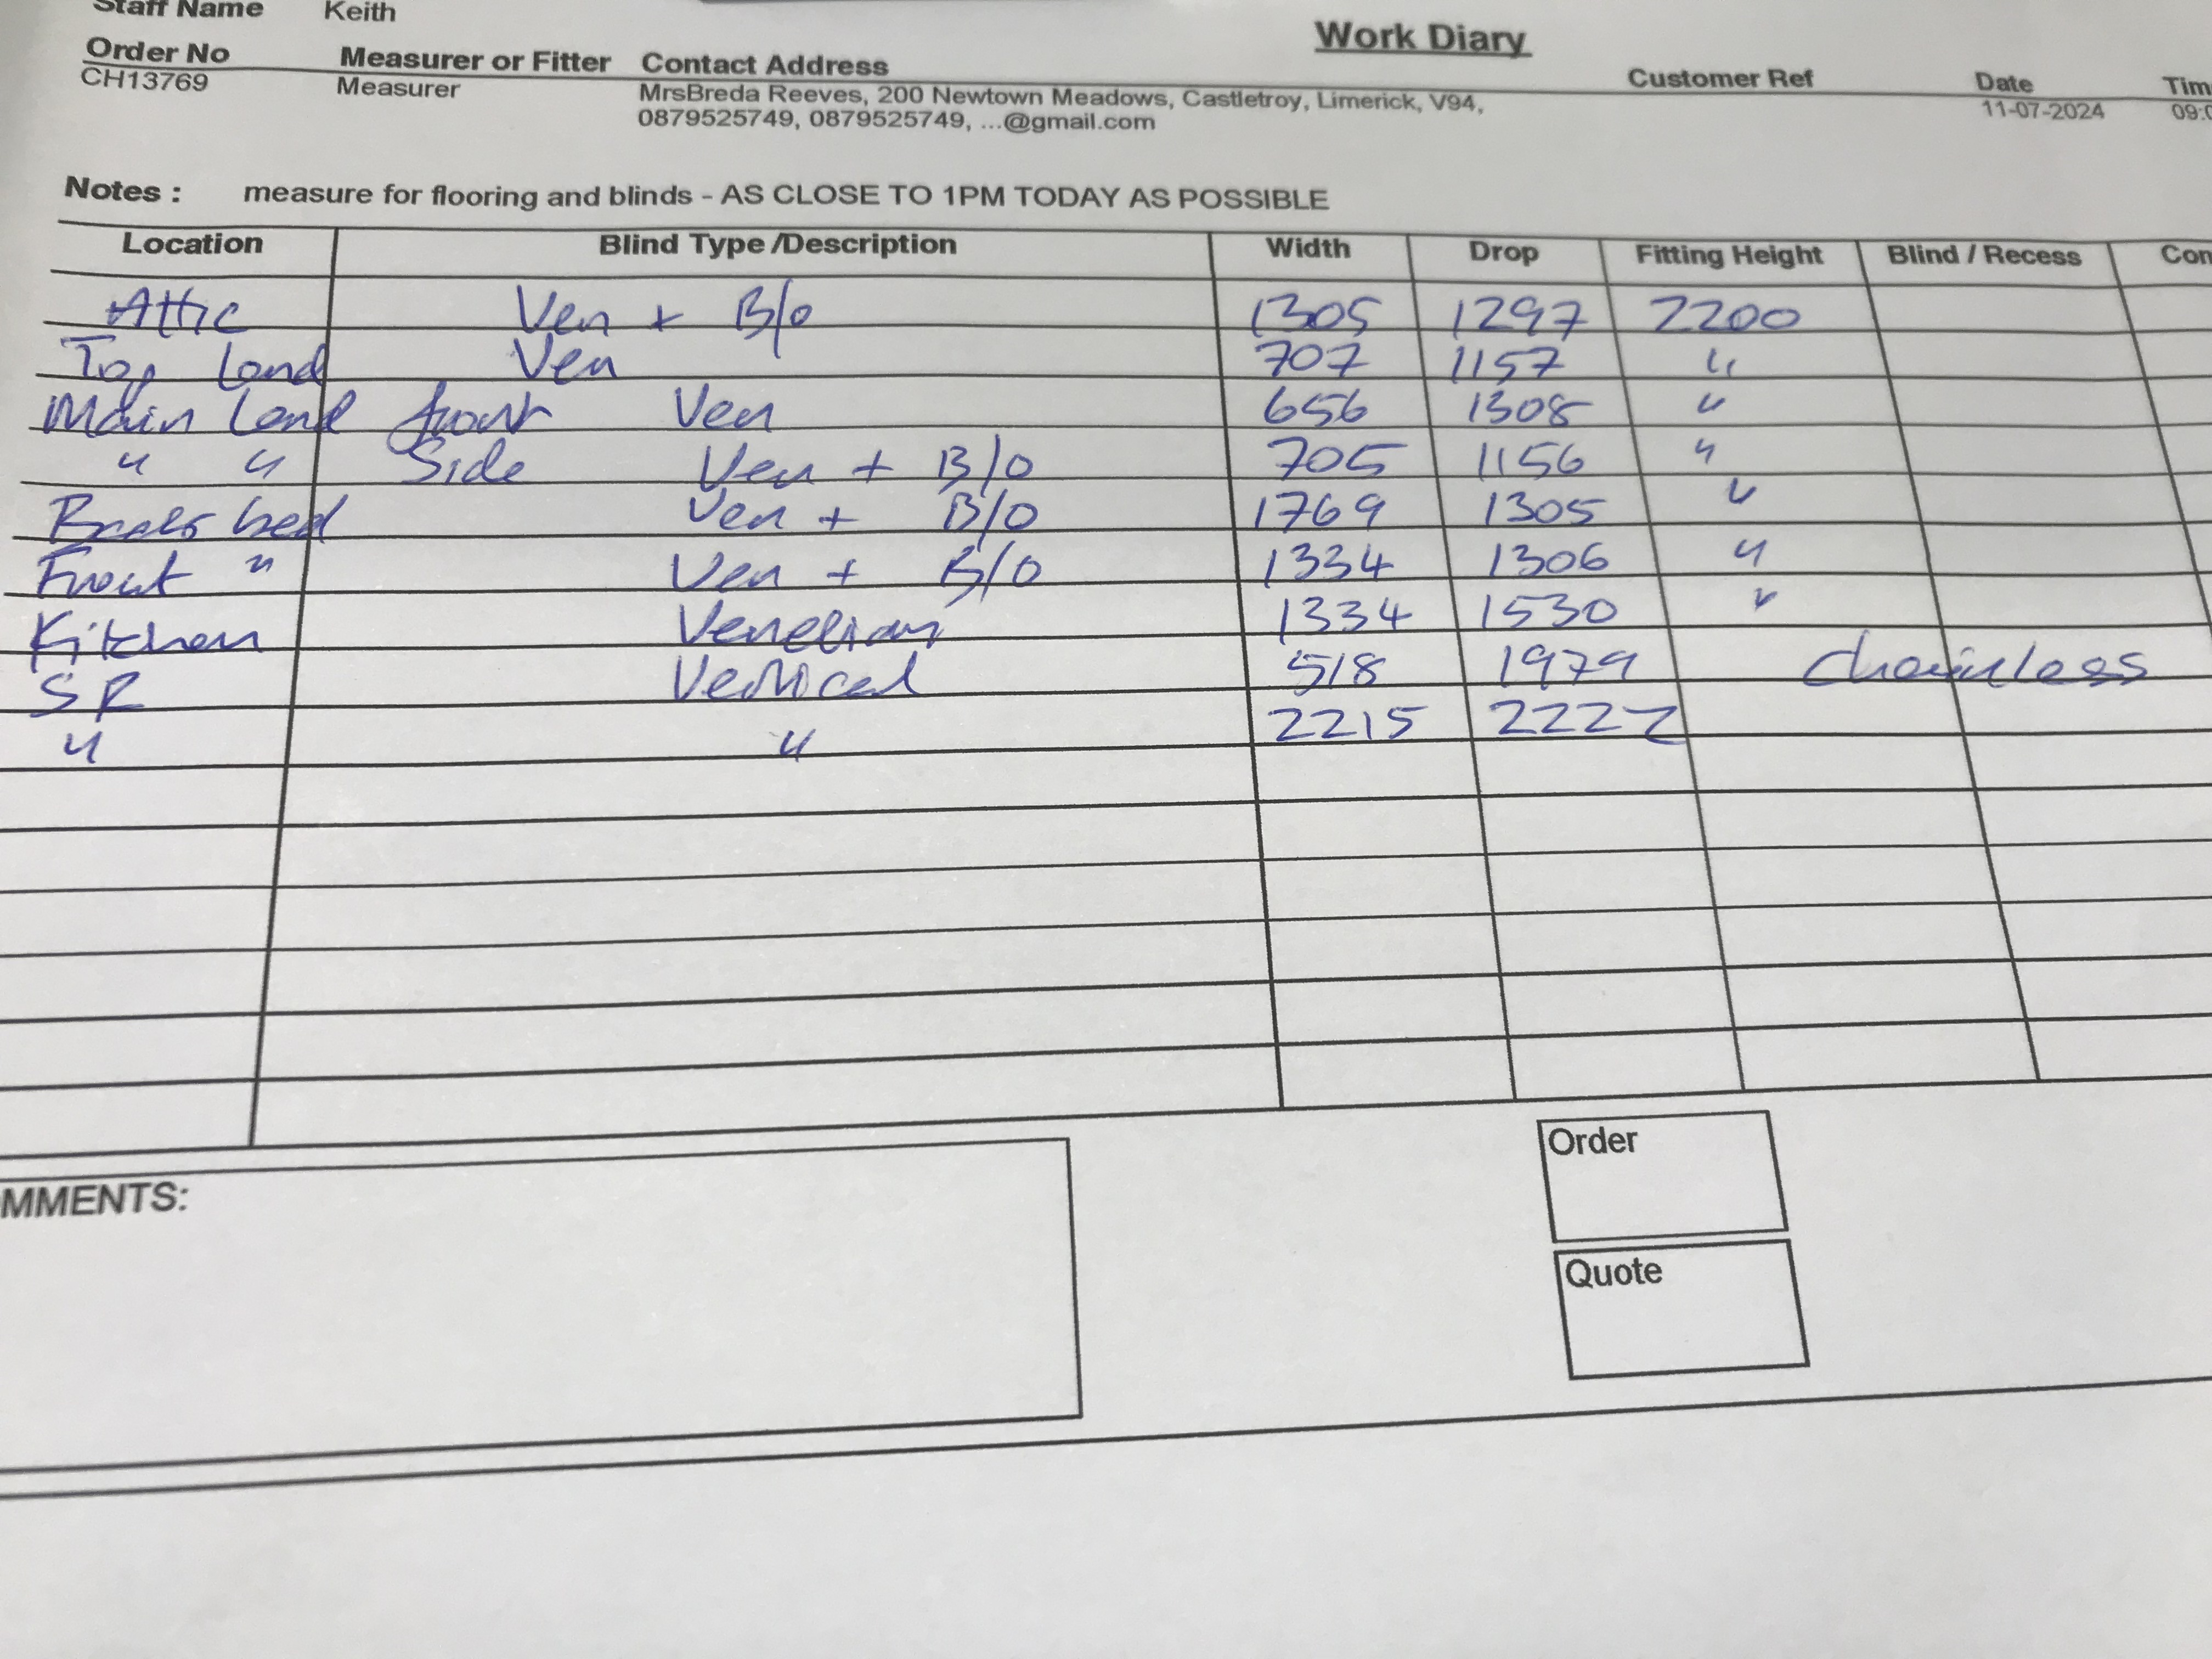 Staff Name Keith
Work Diary
Order No Measurer or Fitter Contact Address Customer Ref Date Tim
CH13769 Measurer MrsBreda Reeves, 200 Newtown Meadows, Castletroy, Limerick, V94, 11-07-2024 09:0
0879525749, 0879525749, ...@gmail.com
Notes : measure for flooring and blinds - AS CLOSE TO 1PM TODAY AS POSSIBLE
Location Blind Type /Description Width Drop Fitting Height Blind / Recess Con
Attic Ven + B/o 1305 1297 2200
Top Land Ven 707 1157 "
Main Land front Ven 656 1308 "
" " Side Ven + B/O 705 1156 "
bed Ven + B/O 1769 1305 "
Front " Ven + B/O 1334 1306 "
Kitchen Venetian 1334 1530 "
SR Vertical 518 1979 chainless
" " 2215 2222
MMENTS:
Order
Quote